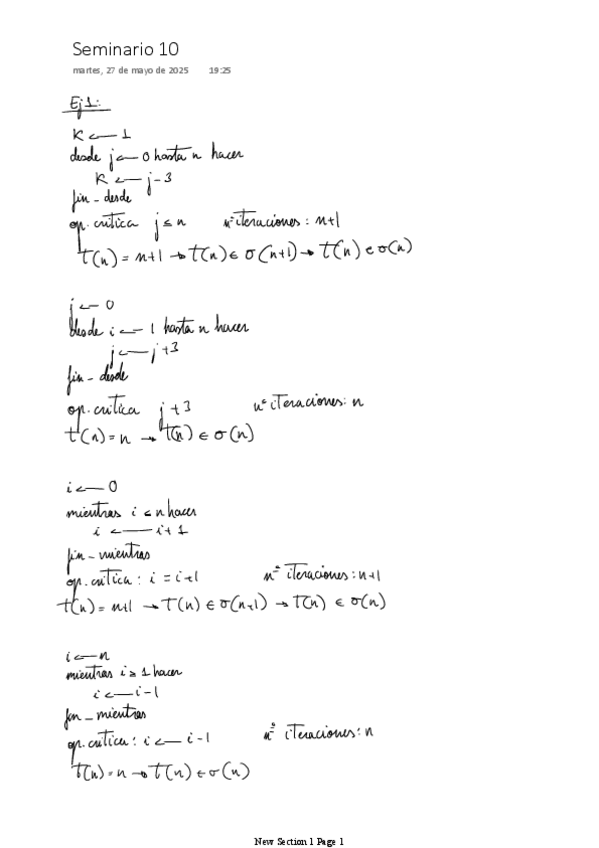 Seminario 10
martes, 27 de mayo de 2025 19:25
Ej 1:
K ← 1
desde j ← 0 hasta n hacer
K ← j-3
fin-desde
op. crítica j ≤ n nº iteraciones: n+1
T(n) = n+1 → T(n) ∈ O(n+1) → T(n) ∈ O(n)
j ← 0
desde i ← 1 hasta n hacer
j ← j+3
fin-desde
op. crítica j+3 nº iteraciones: n
T(n) = n → T(n) ∈ O(n)
i ← 0
mientras i ≤ n hacer
i ← i+1
fin-mientras
op. crítica: i = i+1 nº iteraciones: n+1
T(n) = n+1 → T(n) ∈ O(n+1) → T(n) ∈ O(n)
i ← n
mientras i ≥ 1 hacer
i ← i-1
fin-mientras
op. crítica: i ← i-1 nº iteraciones: n
T(n) = n → T(n) ∈ O(n)
New Section 1 Page 1